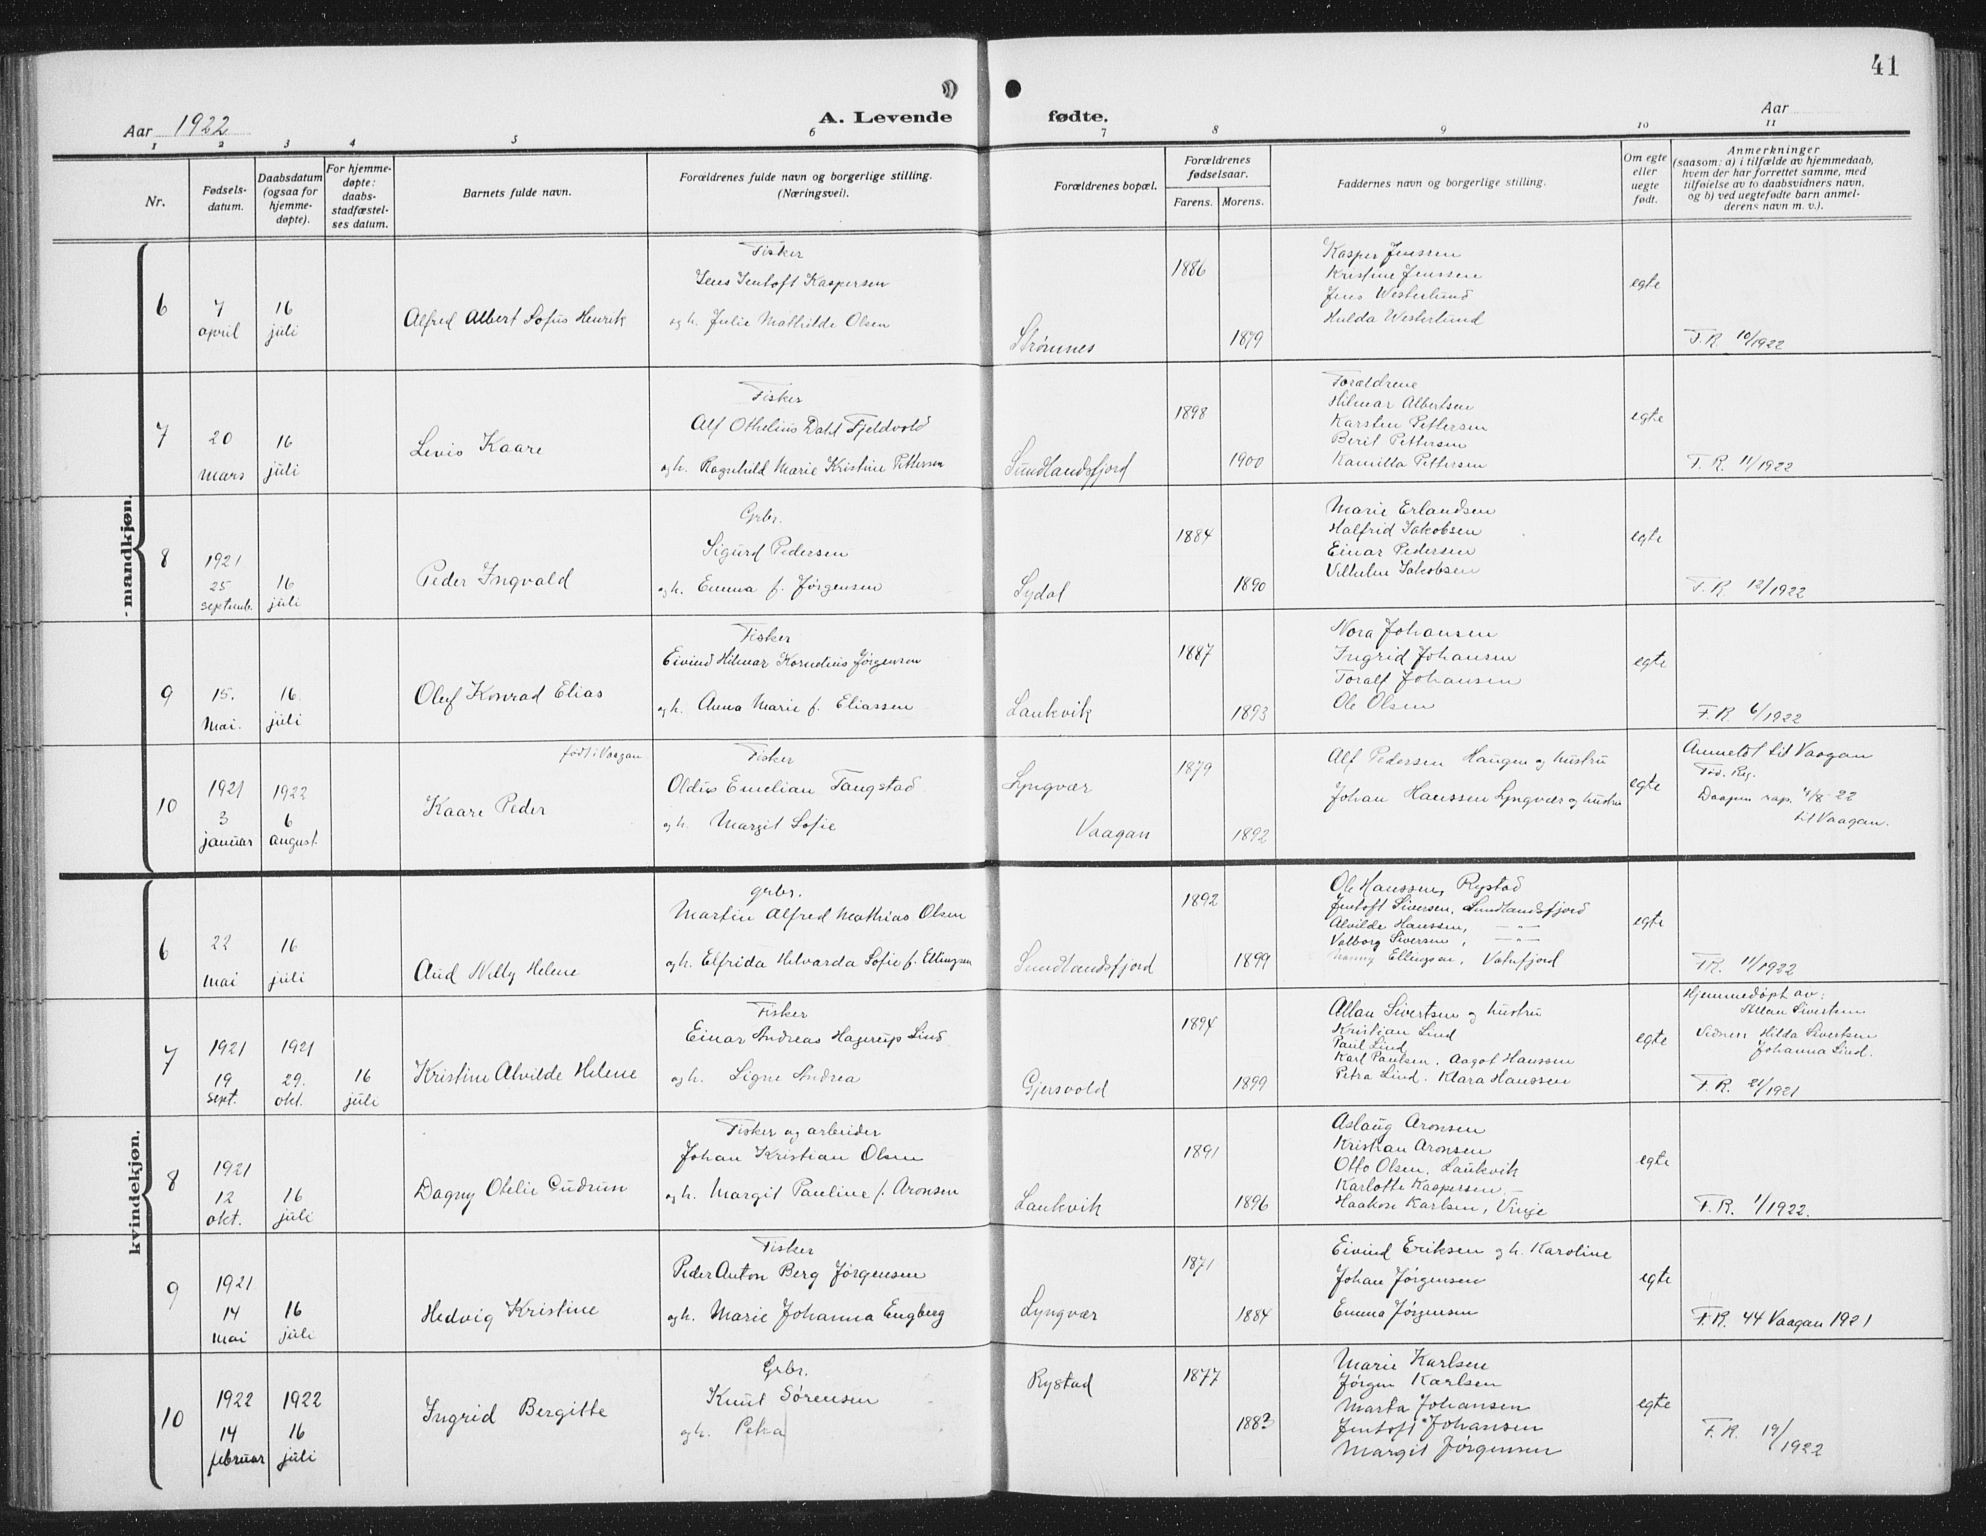 41
Aar 1922
A. Levende fødte.
Aar
1 2 3 4 5 6 7 8 9 10 11
Nr.
Fødsels-
datum.
Daabsdatum
(ogsaa for
hjemme-
døpte).
For hjemme-
døpte:
daabs-
stadfæstel-
ses datum.
Barnets fulde navn.
Forældrenes fulde navn og borgerlige stilling.
(Næringsvei).
Forældrenes bopæl.
Forældrenes
fødselsaar.
Farens. Morens.
Faddernes navn og borgerlige stilling.
Om egte
eller
uegte
født.
Anmerkninger
(saasom: a) i tilfælde av hjemmedaab,
hvem der har forrettet samme, med
tilføielse av to daabsvidners navn,
og b) ved uegtefødte barn anmel-
derens navn m. v.).
- mandkjøn.
6
7
april
16
juli
Alfred Albert Sofus Henrik
Fisker
Jens Jentoft Kaspersen
og h. Julie Mathilde Olsen
Strømnes
1886
1899
Kasper Jenssen
Kristine Jenssen
Jens Westerlund
Hulda Westerlund
egte
F.R. 10/1922
7
20
mars
16
juli
Levis Kaare
Fisker
Alf Othelius Dahl Fjeldvold
og h. Ragnhild Marie Kristine Pettersen
Sundlandsfjord
1898
1900
Forældrene
Hilmar Albertsen
Karsten Pettersen
Berit Pettersen
Kamilla Pettersen
egte
F.R. 11/1922
8
1921
25
septemb.
16
juli
Peder Ingvald
Grbr.
Sigurd Pedersen
og h. Emma f. Jørgensen
Sydal
1884
1890
Marie Erlandsen
Halfrid Jakobsen
Einar Pedersen
Vilhelm Jakobsen
egte
F.R. 12/1922
9
15.
Mai.
16
juli
Oluf Konrad Elias
Fisker
Eivind Hilmar Kornelius Jørgensen
og h. Anna Marie f. Eliassen
Laukvik
1887
1893
Nora Johansen
Ingrid Johansen
Toralf Johansen
Ole Olsen
egte
F.R. 6/1922
10
1921
3
januar
1922
6
august.
født i Vaagan
Kaare Peder
Fisker
Oldus Emelian Tangstad
og h. Margit Sofie
Lyngvær
Vaagan
1879
1892
Alf Pedersen Haugen og hustru
Johan Hanssen Lyngvær og hustru
egte
Anmeldt til Vaagan
Fød. Reg.
Daapen rap. 4/8-22
til Vaagan.
kvindekjøn.
6
22
mai
16
juli
Aud Nelly Helene
grbr.
Martin Alfred Mathias Olsen
og h. Elfrida Helvarda Sofie f. Ellingsen
Sundlandsfjord
1892
1899
Ole Hanssen, Rystad
Jentoft Siversen, Sundlandsfjord
Alvilde Hanssen, — " —
Valborg Siversen, — " —
Nanny Ellingsen, Vatnfjord
egte
F.R. 11/1922
7
1921
19
sept.
1921
29.
okt.
16
juli
Kristine Alvilde Helene
Fisker
Einar Andreas Hagerup Lind
og h. Signe Andrea
Gjersvold
1894
1899
Allan Sivertsen og hustru
Kristian Lind
Paul Lind
Karl Paulsen. Aagot Hanssen
Petra Lind. Klara Hanssen
egte
Hjemmedøpt av:
Allan Sivertsen
Vidner: Hilda Sivertsen
Johanna Lind.
F.R. 21/1921
8
1921
12
okt.
16
juli
Dagny Otelie Gudrun
Fisker og arbeider
Johan Kristian Olsen
og h. Margit Pauline f. Aronsen
Laukvik
1891
1896
Aslaug Aronsen
Kristian Aronsen
Otto Olsen, Laukvik
Karlotte Kaspersen
Haakon Karlsen, Vinje
egte
F.R. 1/1922.
9
1921
14
mai
16
juli
Hedvig Kristine
Fisker
Peder Anton Berg Jørgensen
og h. Marie Johanna Engberg
Lyngvær
1871
1884
Eivind Eriksen og h. Karoline
Johan Jørgensen
Emma Jørgensen
egte
F.R. 44 Vaagan 1921
10
1922
14
februar
1922
16
juli
Ingrid Bergitte
Grbr.
Knut Sørensen
og h. Petra
Rystad
1877
1883
Marie Karlsen
Jørgen Karlsen
Marta Johansen
Jentoft Johansen
Margit Jørgensen
egte
F.R. 19/1922